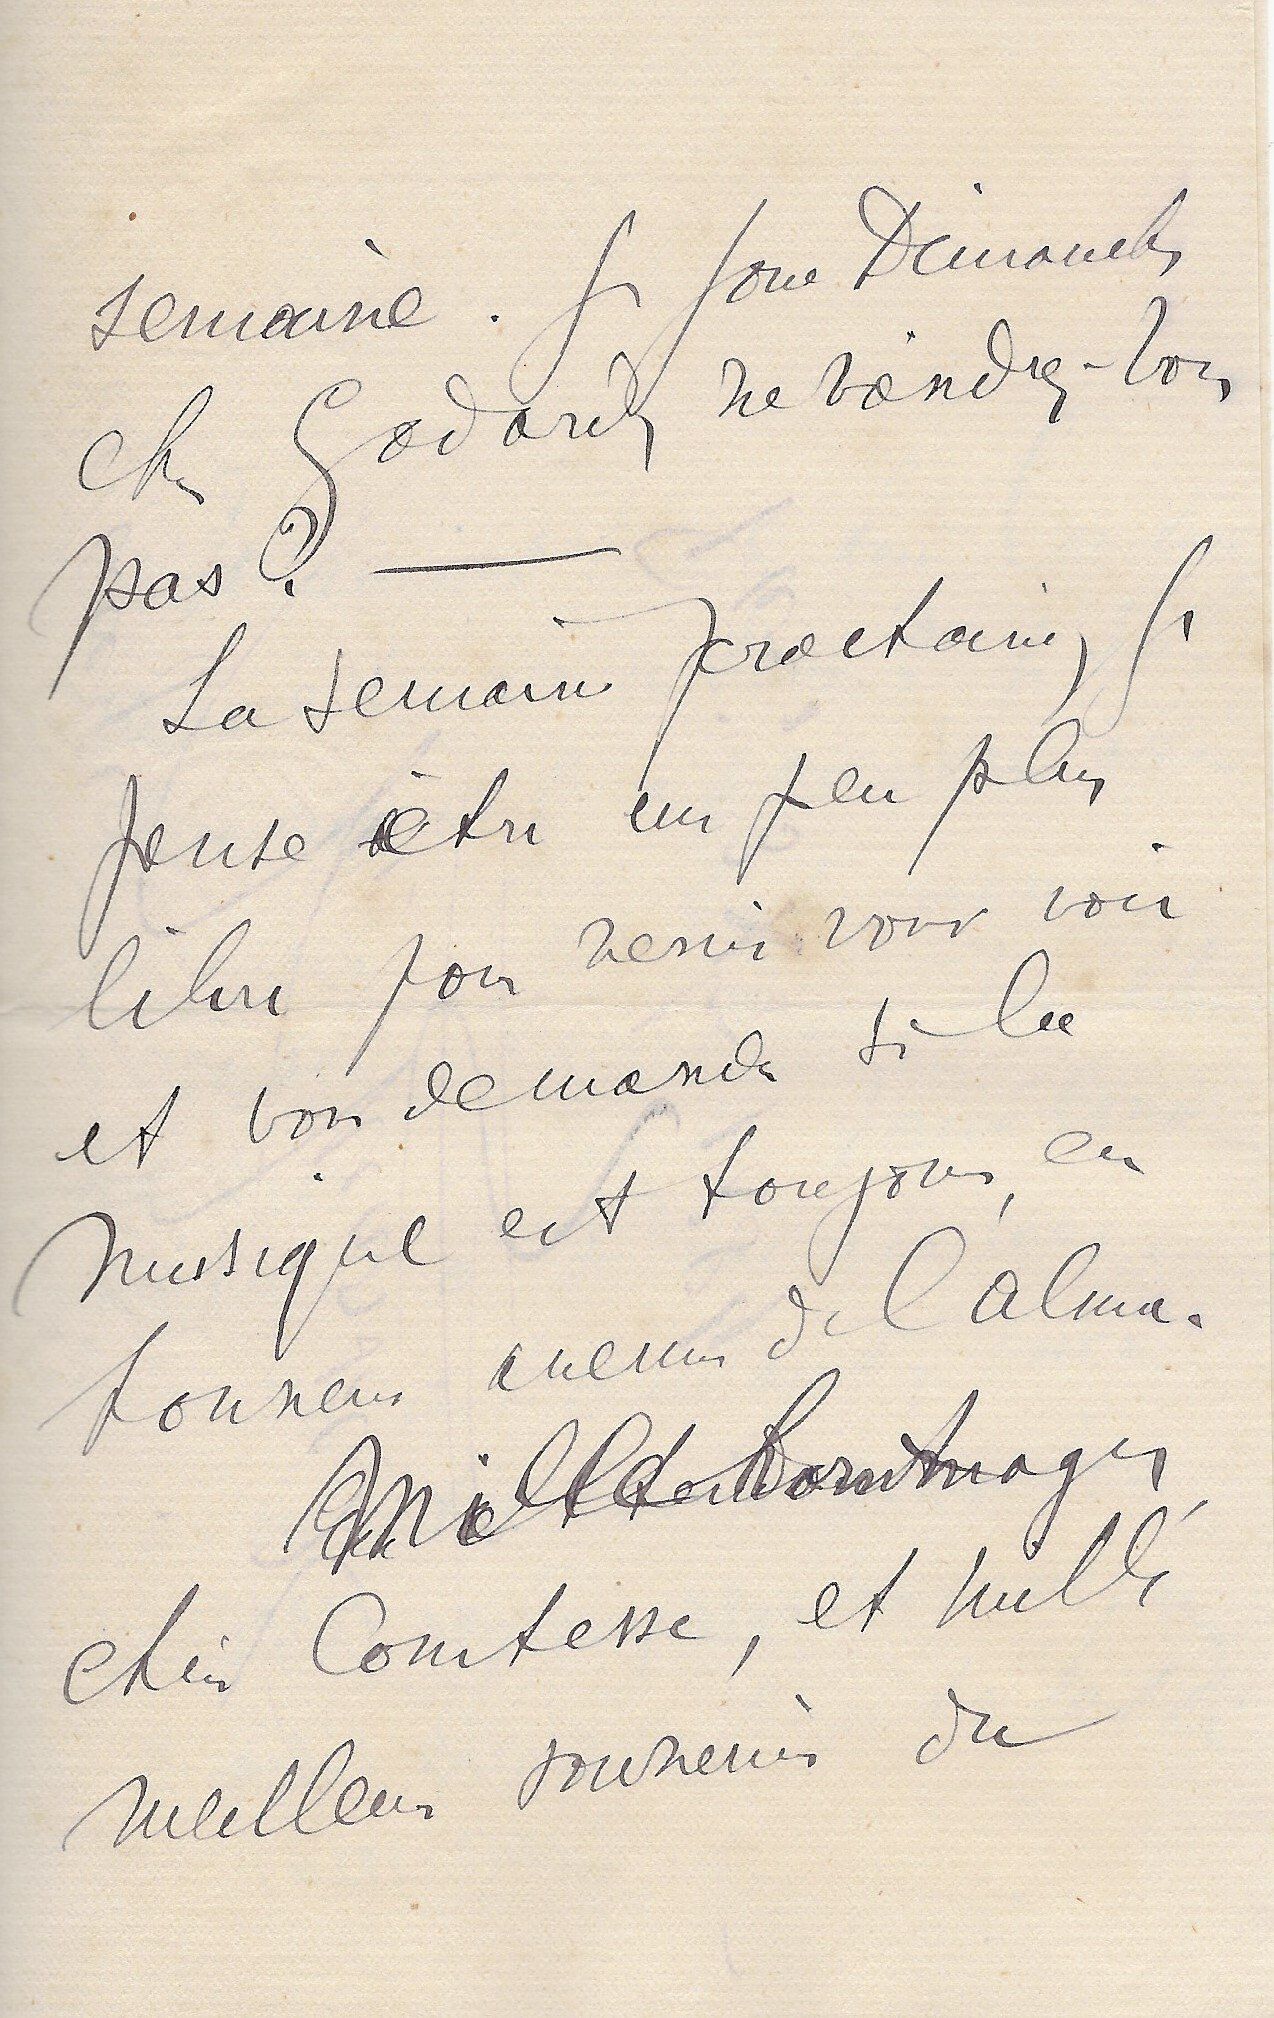 semaine. Je joue Dimanche
chez Godard, ne viendrez-vous
pas? —
La semaine prochaine, je
pense être un peu plus
libre pour venir vous voir
et vous demander si la
musique est toujours en
honneur avenue de l'Alma.
Mille hommages,
chère Comtesse, et mille
meilleurs souvenirs du